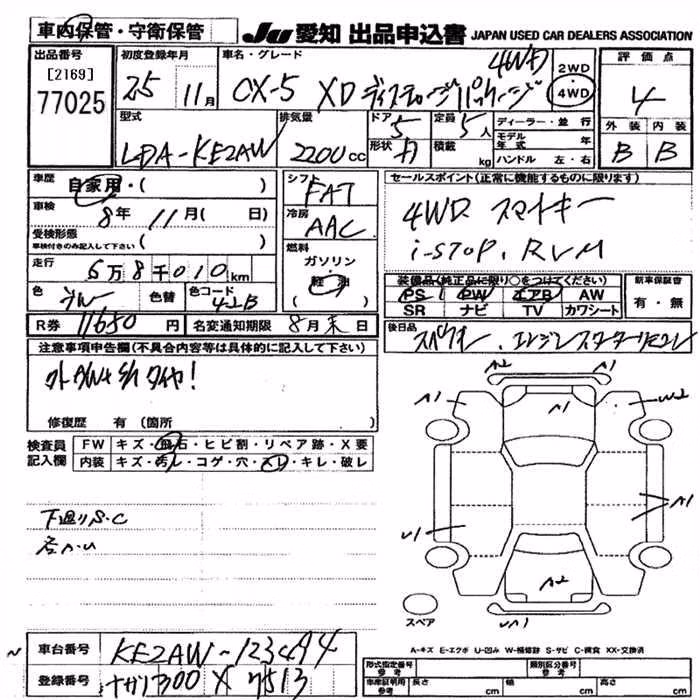 車内保管・守衛保管
JU 愛知 出品申込書 JAPAN USED CAR DEALERS ASSOCIATION
出品番号 [2169] 77025
初度登録年月 25 11月
車名・グレード CX-5 XD ディスチャージパッケージ 4WD
2WD・4WD
評価点 4
外装 B 内装 B
型式 LDA-KE2AW
排気量 2200cc
ドア 5 形状
定員 5人
積載 kg
ディーラー・並行
モデル年式 年
ハンドル 左・右
車歴 自家用・( )
車検 8年 11月( 日)
受検形態 車検付きのみ記入して下さい ( )
走行 5万8千010km
色 色替 色コード 42B
シフト FAT
冷房 AAC
燃料 ガソリン・軽油
セールスポイント(正常に機能するものに限ります)
4WD スマートキー
i-STOP. RVM
装備品(純正品に限り○をつけてください)
PS PW エアB AW
SR ナビ TV カワシート
新車保証書 有・無
R券 11680円 名変通知期限 8月末日
後日品 スペアキー、エンジンスターターリモコン
注意事項申告欄(不具合内容等は具体的に記入して下さい)
修復歴 有(箇所 )
検査員記入欄
FW キズ・飛石・ヒビ割・リペア跡・X要
内装 キズ・汚レ・コゲ・穴・スレ・キレ・破レ
下廻りS.C
各A.U
A2 A1 A1 W2
A1
U1
A2
UA1
スペア
A-キズ E-エクボ U-凹み W-補修跡 S-サビ C-腐食 XX-交換済
車台番号 KE2AW-123494
登録番号 300 7513
型式指定番号 参考
類別区分番号 参考
車庫証明用 参考 長さ cm 幅 cm 高さ cm